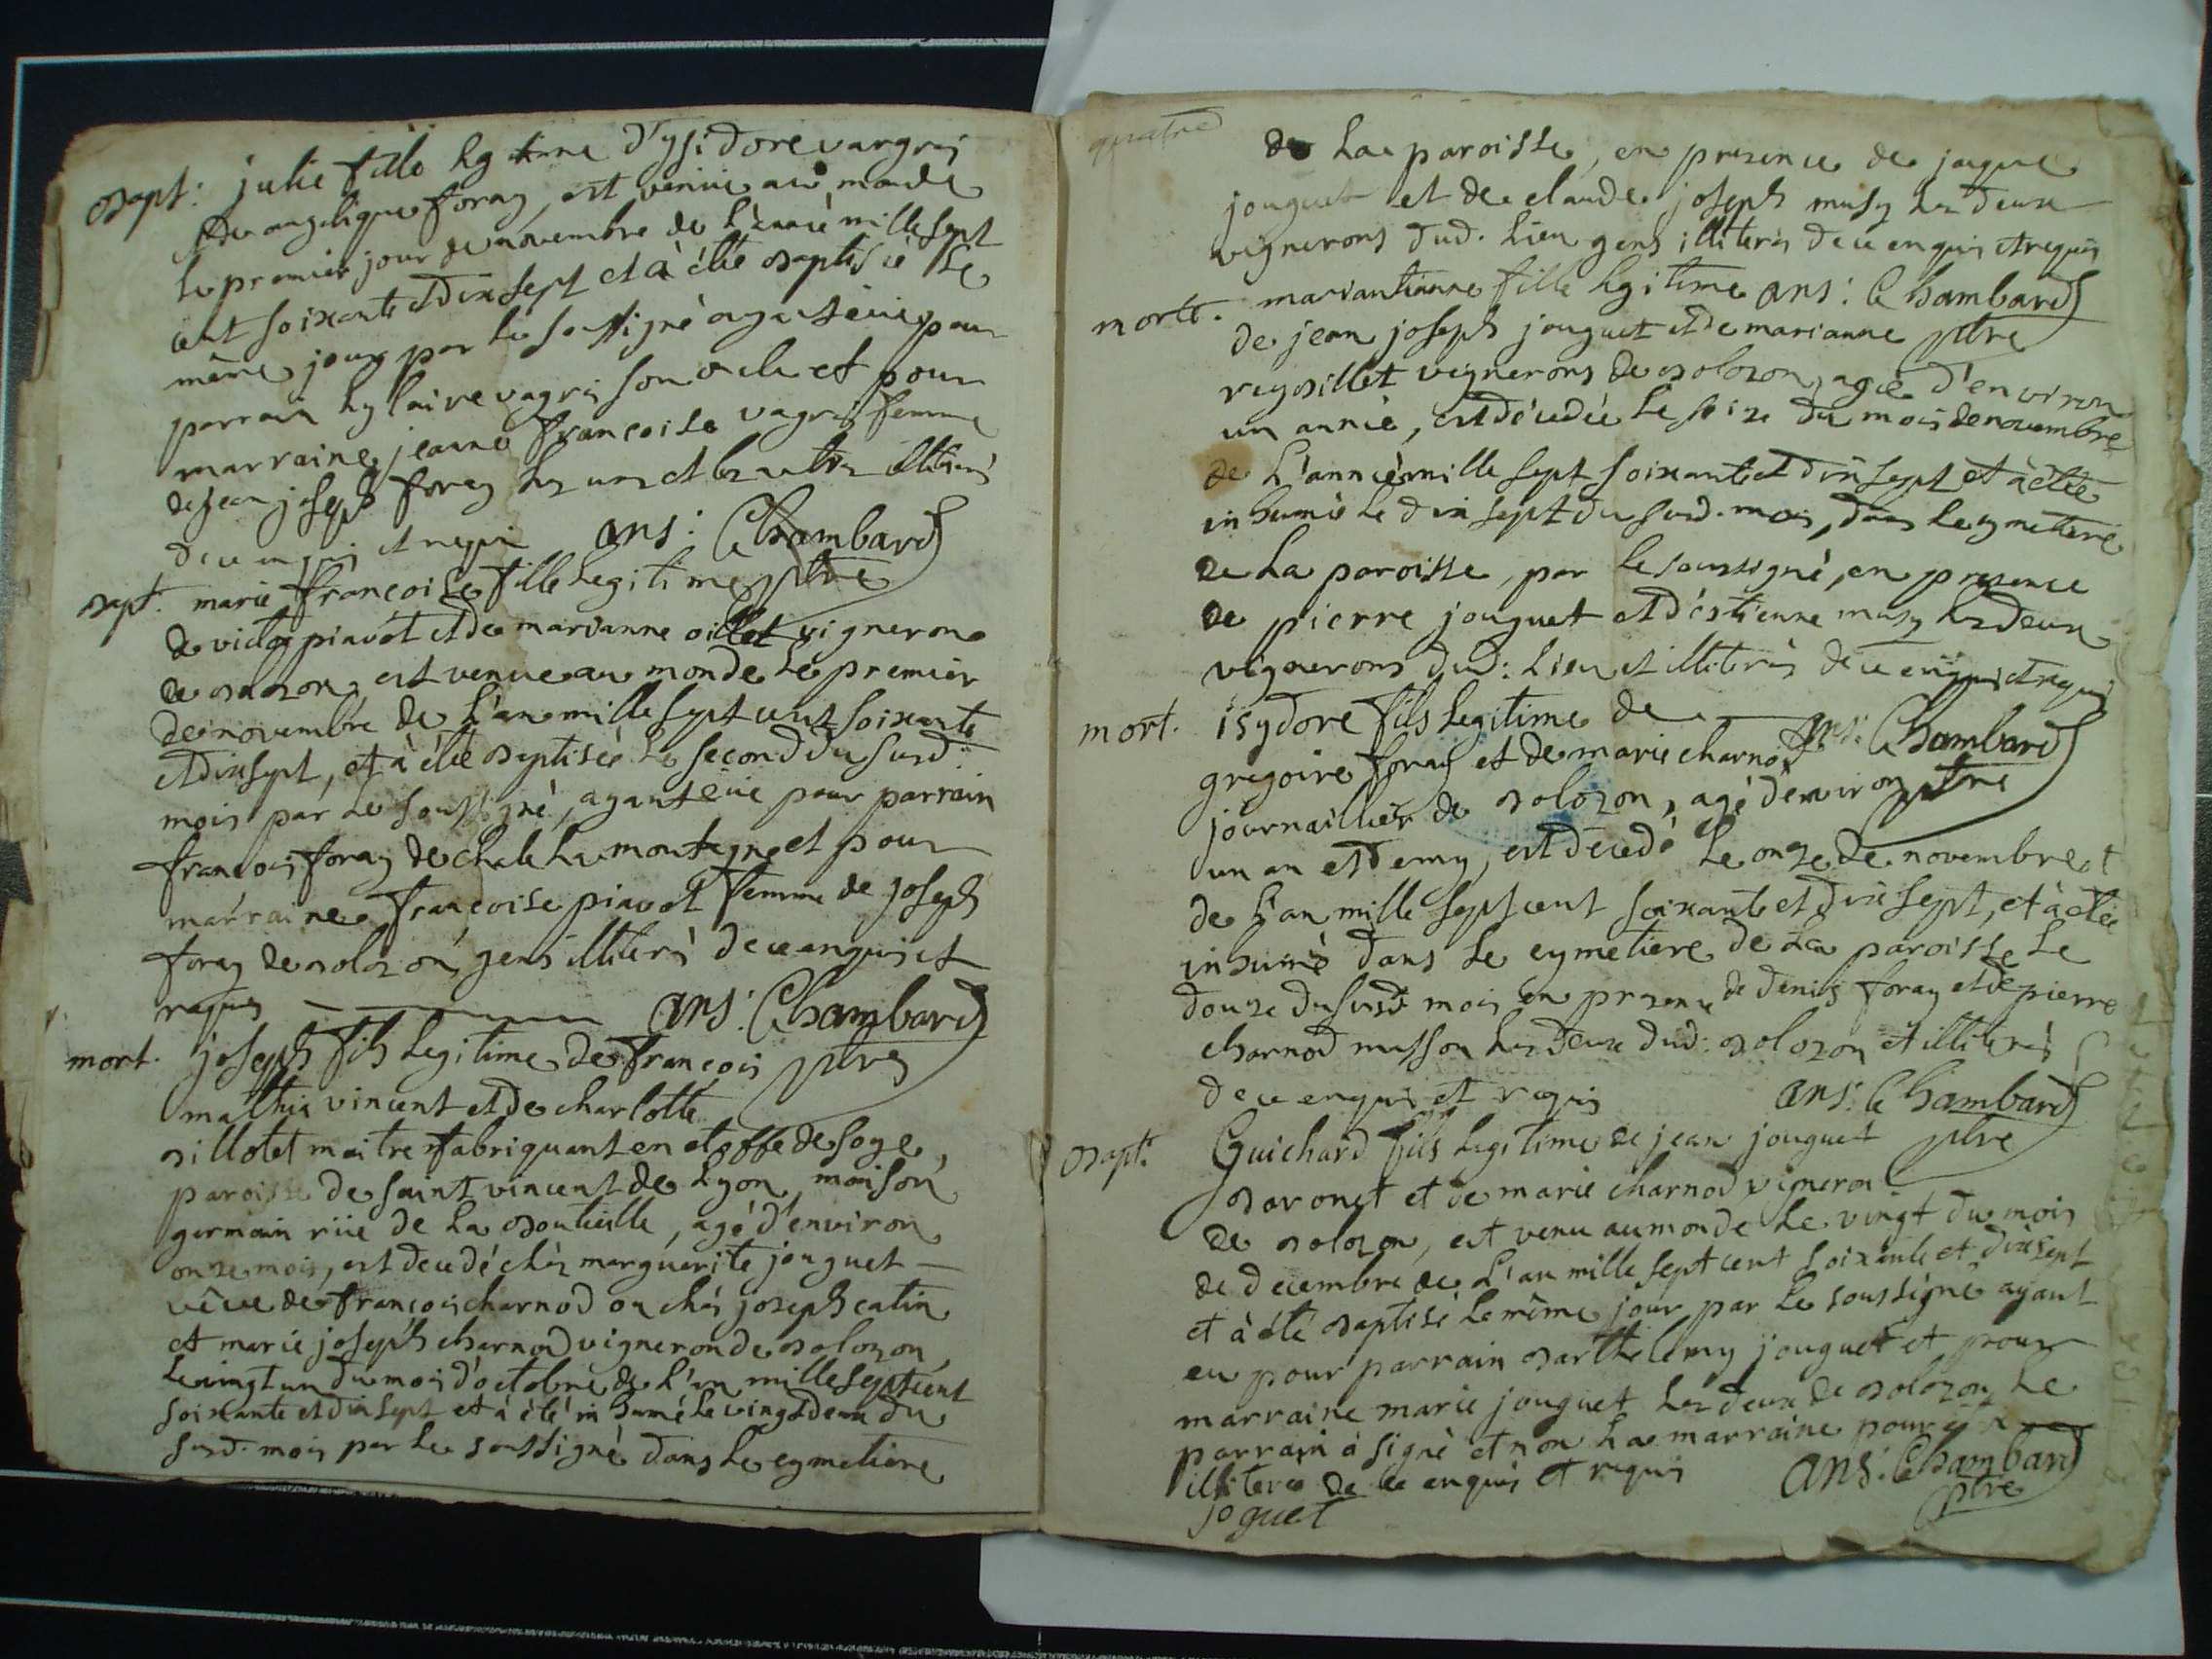 bapt: julie fille legitime d'ysidore vagrey
et de angelique foray, est venüe au monde
le premier jour de novembre de l'année mille sept
cent soixante et dix sept et à été baptisée le
même jour par le soussigné ayant eüe pour
parrain hylaire vagrey son oncle et pour
marraine jeanne françoise vagrey femme
de jean joseph foray les uns et les autres illiterés
de ce enquis et requis ans: Chambard
bapt. marie françoise fille legitime ptre
de victor piavot et de marianne billet vigneron
de bolozon, est venue au monde le premier
de novembre de l'an mille sept cent soixante
et dix sept, et à été baptisée le second du susd:
mois par le soussigné, ayant eüe pour parrain
françois foray de la montagne et pour
marraine françoise piavot femme de joseph
foray de bolozon, gens illiterés de ce enquis et
requis ans: Chambard
mort. joseph fils legitime de françois ptre
mathia vincent et de charlotte
billotet maitre fabriquant en etoffe de soye,
paroisse de saint vincent de lyon, maison
germain rüe de la bouteille, agé d'environ
onze mois, est decedé chés marguerite jouguet
vêve de françois charnod ou chés joseph catin
et marie joseph charnod vigneron de bolozon,
le vingt un du mois d'octobre de l'an mille sept cent
soixante et dix sept et à été inhumé le vingt deux du
susd. mois par le soussigné dans le cymetiere
quatre
de la paroisse, en presence de jaque
jouguet et de claude joseph musy les deux
vignerons dud. lieu gens illiterés de ce enquis et requis
morte. mariantianne fille legitime ans: Chambard
de jean joseph jouguet et de marianne ptre
reybillet vignerons de bolozon, agée d'environ
un année, est décedée le seize du mois de novembre
de l'année mille sept soixante et dix sept et à été
inhumée le dix sept du susd. mois, dans le cymetiere
de la paroisse, par le soussigné, en presence
de pierre jouguet et d'estienne musy les deux
vignerons dud: lieu et illiterés de ce enquis et requis
mort. isydore fils legitime de ans: Chambard
gregoire foray et de marie charnod ptre
journaillier de bolozon, agé d'environ
un an et demy, est decedé le onze de novembre
de l'an mille sept cent soixante et dix sept, et à été
inhumé dans le cymetiere de la paroisse le
douze du susd. mois en presence de denis foray et de pierre
charnod masson les deux dud: bolozon et illiterés
de ce enquis et requis ans: Chambard
bapt. Guichard fils legitime de jean jouguet ptre
baronet et de marie charnod vigneron
de bolozon, est venu au monde le vingt du mois
de decembre de l'an mille sept cent soixante et dix sept
et à été baptisé le même jour par le soussigné ayant
eu pour parrain barthelemy jouguet et pour
marraine marie jouguet les deux de bolozon le
parrain à signé et non la marraine pour être
illiterée de ce enquis et requis ans: Chambard
joguet ptre